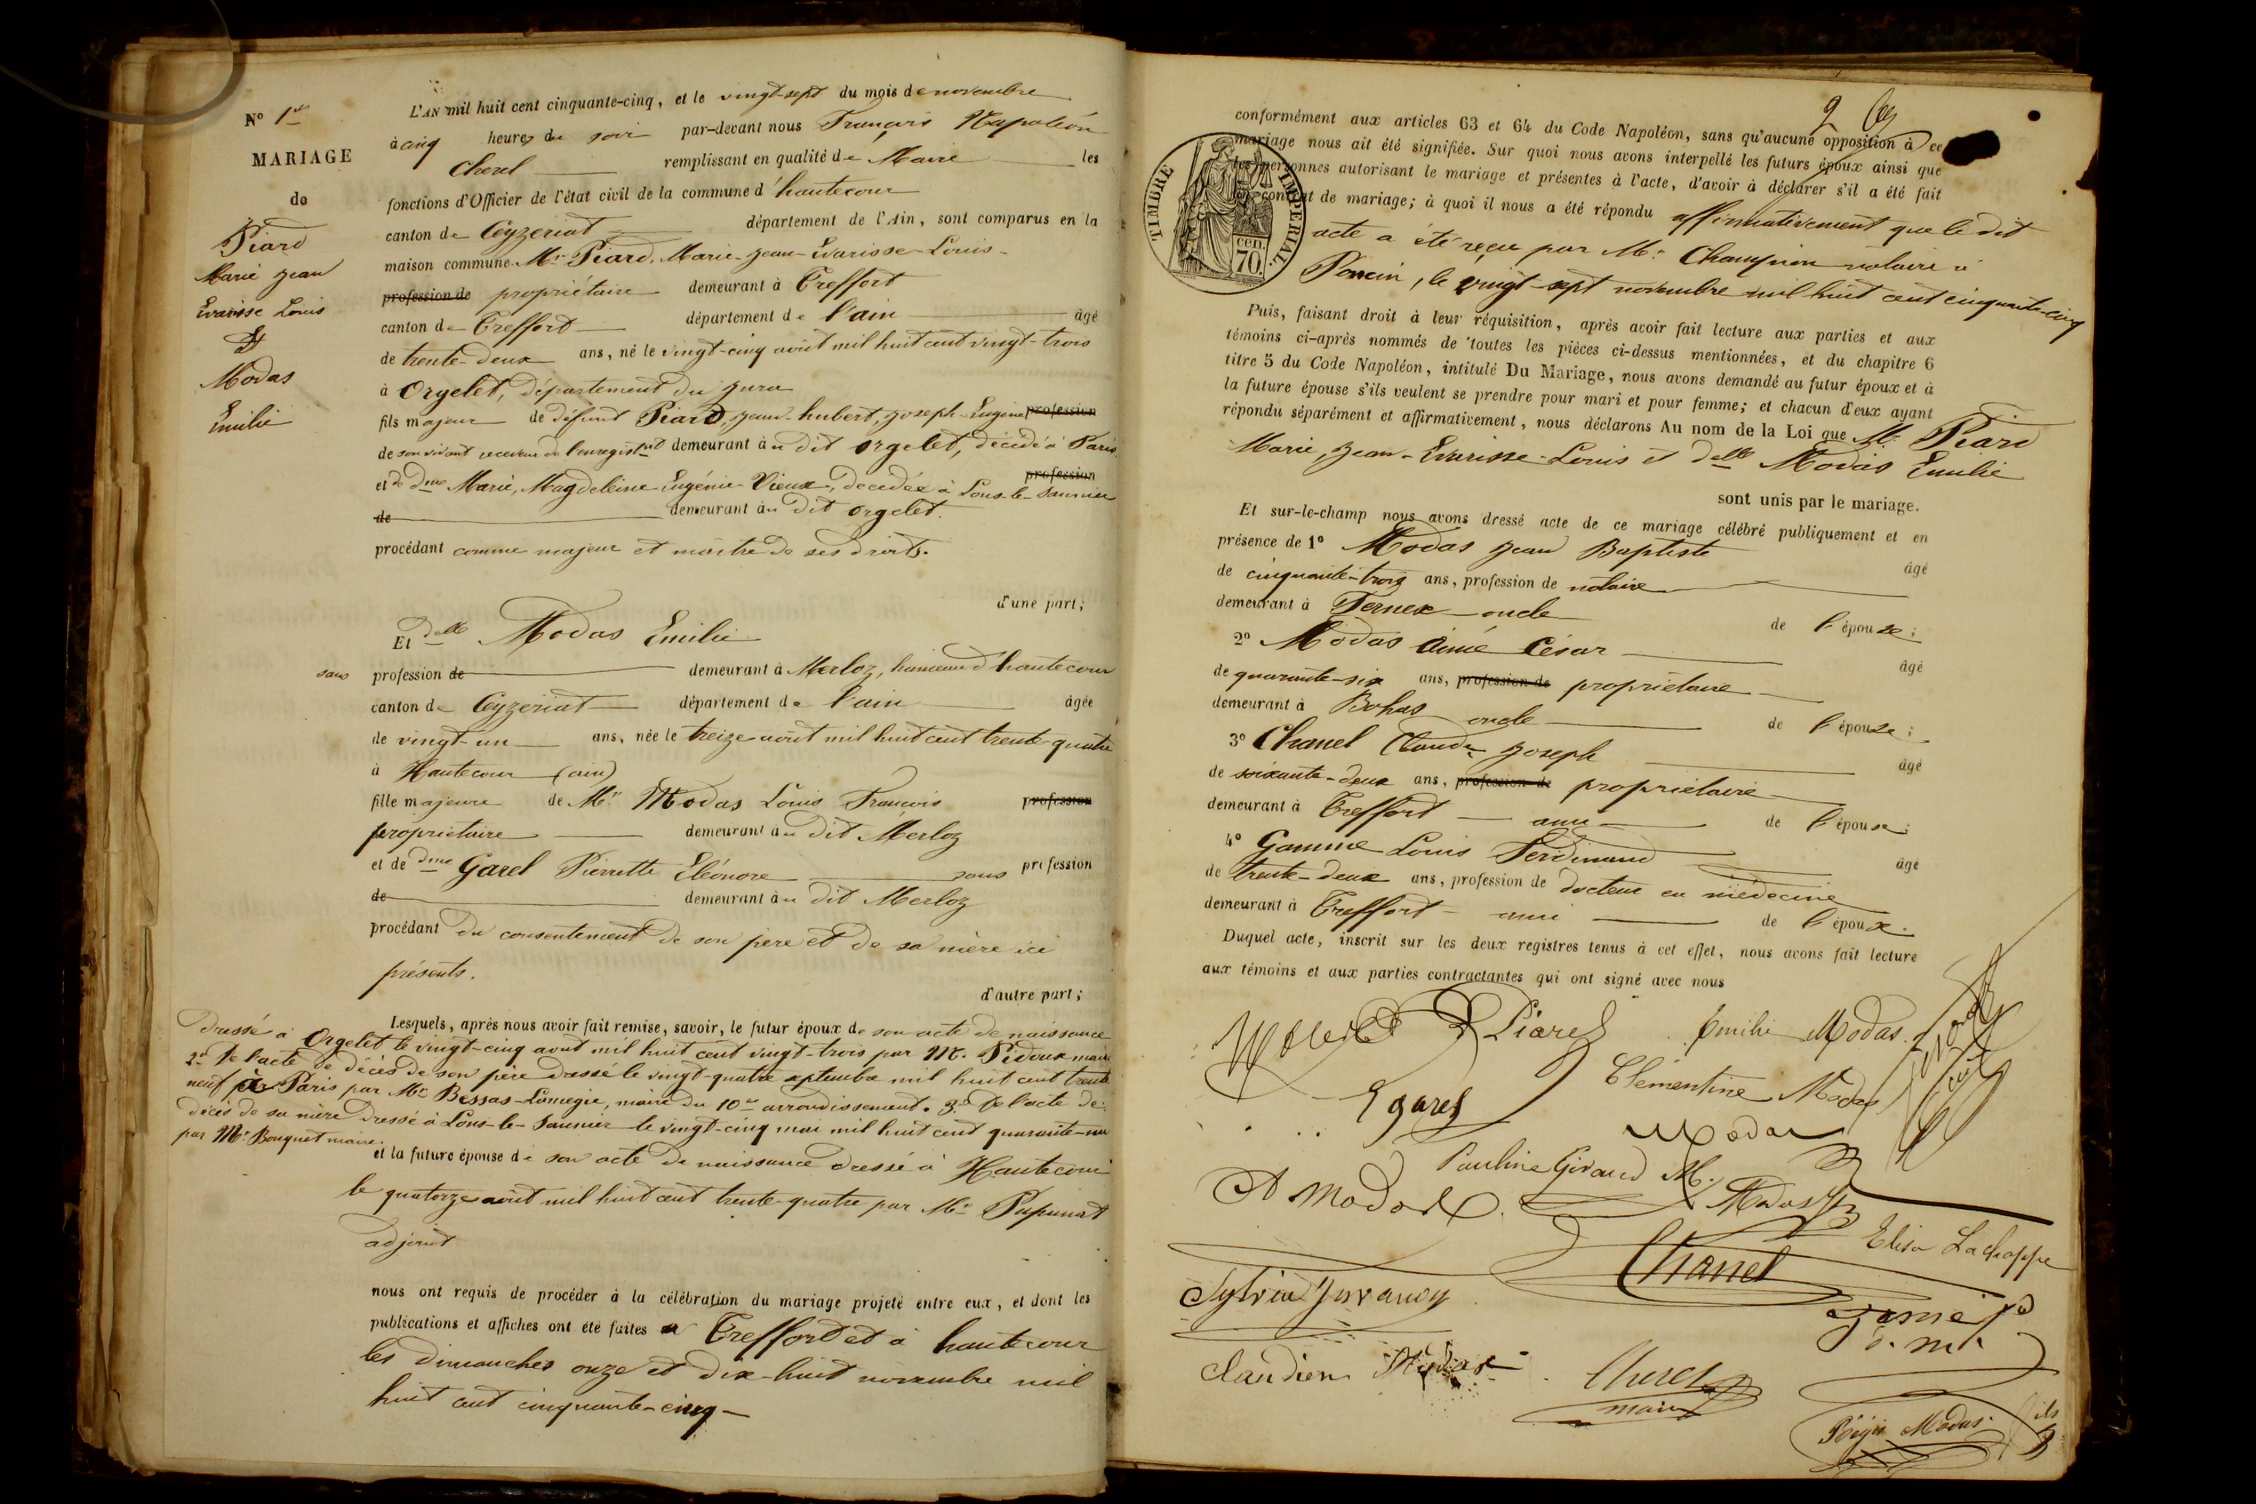 N° 1er
MARIAGE
de
Piard
Marie Jean
Evarisse Louis
Et
Modas
Emilie
L'AN mil huit cent cinquante-cinq, et le vingt-sept du mois de novembre
à cinq heures du soir par-devant nous François Napoléon
Cherel remplissant en qualité de Maire les
fonctions d'Officier de l'état civil de la commune d'hautecour
canton de Ceyzeriat département de l'Ain, sont comparus en la
maison commune Mr Piard, Marie-Jean-Evarisse-Louis-
profession de propriétaire demeurant à Treffort
canton de Treffort département de l'ain âgé
de trente-deux ans, né le vingt-cinq août mil huit cent vingt-trois
à Orgelet, département du Jura
fils majeur de défunt Piard, Jean-hubert, Joseph-Eugène profession
de son vivant receveur de l'enregistnt demeurant au dit Orgelet, décédé à Paris
et de dme Marie, Magdeleine Eugénie-Vieux, décédée à Lons-le-Saunier profession
de demeurant au dit Orgelet.
procédant comme majeur et maître de ses droits.
d'une part;
Et delle Modas Emilie
sans profession de demeurant à Merloz, hameau d'hautecour
canton de Ceyzeriat département de l'ain âgée
de vingt-un ans, née le treize août mil huit cent trente-quatre
à Hautecour (ain)
fille majeure de Mr Modas Louis François profession
propriétaire demeurant au dit Merloz
et de dme Garel Pierrette Eléonore sans profession
de demeurant au dit Merloz
procédant du consentement de son père et de sa mère ici
présents.
d'autre part;
Lesquels, après nous avoir fait remise, savoir, le futur époux de son acte de naissance
dressé à Orgelet le vingt-cinq aout mil huit cent vingt-trois par Mr. Pidoux maire
2° de l'acte de décès de son père dressé le vingt-quatre septembre mil huit cent trente
neuf à Paris par Mr Bessas-Lamegie, maire du 10e arrondissement. 3° de l'acte de
décès de sa mère dressé à Lons-le-Saunier le vingt-cinq mai mil huit cent quarante-un
par Mr Bouquet maire.
et la future épouse de son acte de naissance dressé à Hautecour
le quatorze août mil huit cent trente-quatre par Mr Papunat
adjoint
nous ont requis de procéder à la célébration du mariage projeté entre eux, et dont les
publications et affiches ont été faites à Treffort et à hautecour
les dimanches onze et dix-huit novembre mil
huit cent cinquante-cinq
2
conformément aux articles 63 et 64 du Code Napoléon, sans qu'aucune opposition à ce
mariage nous ait été signifiée. Sur quoi nous avons interpellé les futurs époux ainsi que
les personnes autorisant le mariage et présentes à l'acte, d'avoir à déclarer s'il a été fait
un contrat de mariage; à quoi il nous a été répondu affirmativement que le dit
acte a été reçu par Mr Champion notaire à
Poncin, le vingt-sept novembre mil huit cent cinquante-cinq
TIMBRE IMPERIAL.
cen.
70
Puis, faisant droit à leur réquisition, après avoir fait lecture aux parties et aux
témoins ci-après nommés de toutes les pièces ci-dessus mentionnées, et du chapitre 6
titre 5 du Code Napoléon, intitulé Du Mariage, nous avons demandé au futur époux et à
la future épouse s'ils veulent se prendre pour mari et pour femme; et chacun d'eux ayant
répondu séparément et affirmativement, nous déclarons Au nom de la Loi que Mr Piard
Marie, Jean-Evarisse-Louis et delle Modas Emilie
sont unis par le mariage.
Et sur-le-champ nous avons dressé acte de ce mariage célébré publiquement et en
présence de 1° Modas Jean Baptiste âgé
de cinquante-trois ans, profession de notaire
demeurant à Fernex oncle de l'épouse;
2° Modas Aimé César âgé
de quarante-six ans, profession de propriétaire
demeurant à Bohas oncle de l'épouse;
3° Chanel Claude Joseph âgé
de soixante-deux ans, profession de propriétaire
demeurant à Treffort ami de l'épouse;
4° Gamme Louis Ferdinand âgé
de trente-deux ans, profession de docteur en médecine
demeurant à Treffort ami de l'époux.
Duquel acte, inscrit sur les deux registres tenus à cet effet, nous avons fait lecture
aux témoins et aux parties contractantes qui ont signé avec nous
Piard Emilie Modas
Clémentine Modas
E garel
Modas
Pauline Giraud M.
A Modas
Modas
Elisa Lachappe
Chanel
Sylvie
d. m.
Claudien Modas
Cherel
maire
Régis Modas fils